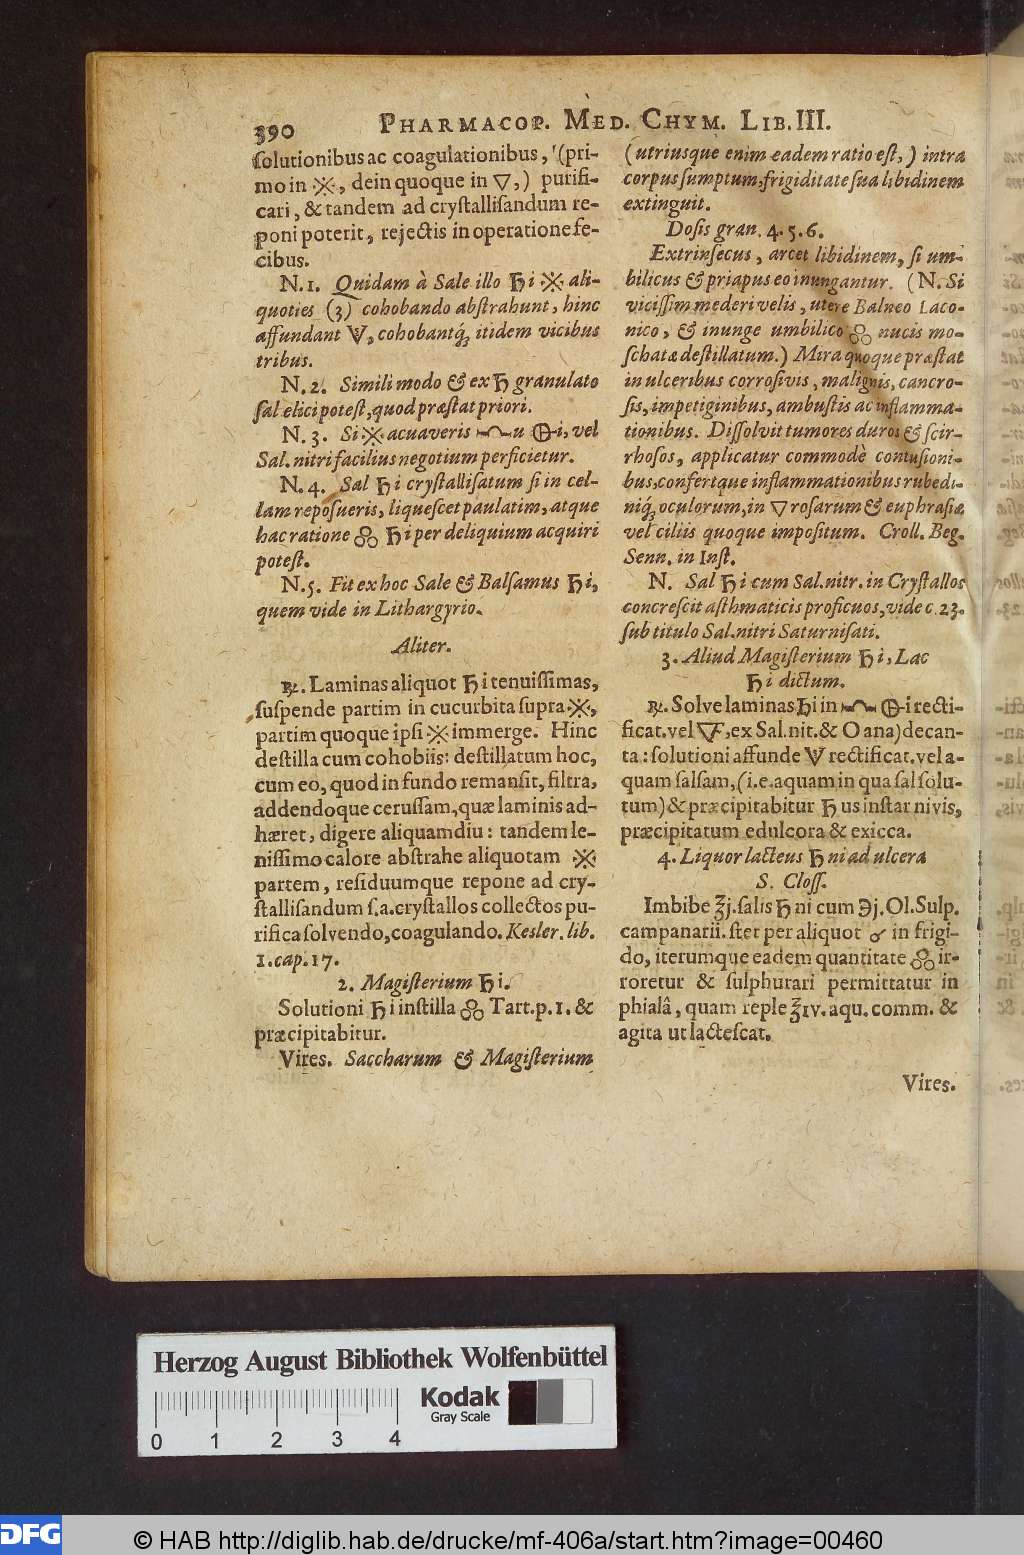 390 PHARMACOP. MED. CHYM. LIB. III.
ſolutionibus ac coagulationibus, (pri-
mo in ⁜, dein quoque in 🜄,) purifi-
cari, & tandem ad cryſtalliſandum re-
poni poterit, rejectis in operatione fe-
cibus.
N. 1. Quidam à Sale illo ♄i ⁜ ali-
quoties (3) cohobando abſtrahunt, hinc
affundant 🜈, cohobantq́; itidem vicibus
tribus.
N. 2. Simili modo & ex ♄ granulato
ſal elici poteſt, quod præſtat priori.
N. 3. Si ⁜ acuaveris u i, vel
Sal. nitri facilius negotium perficietur.
N. 4. Sal ♄i cryſtalliſatum ſi in cel-
lam repoſueris, liqueſcet paulatim, atque
hac ratione ஃ ♄i per deliquium acquiri
poteſt.
N. 5. Fit ex hoc Sale & Balſamus ♄i,
quem vide in Lithargyrio.
Aliter.
℞. Laminas aliquot ♄i tenuiſſimas,
ſuſpende partim in cucurbita ſupra ⁜,
partim quoque ipſi ⁜ immerge. Hinc
deſtilla cum cohobiis: deſtillatum hoc,
cum eo, quod in fundo remanſit, filtra,
addendoque ceruſſam, quæ laminis ad-
hæret, digere aliquamdiu: tandem le-
niſſimo calore abſtrahe aliquotam ⁜
partem, reſiduumque repone ad cry-
ſtalliſandum ſ.a. cryſtallos collectos pu-
rifica ſolvendo, coagulando. Kesler. lib.
1. cap. 17.
2. Magiſterium ♄i.
Solutioni ♄i inſtilla ஃ Tart. p. 1. &
præcipitabitur.
Vires. Saccharum & Magiſterium
(utriusque enim eadem ratio eſt,) intra
corpus ſumptum, frigiditate ſua libidinem
extinguit.
Doſis gran. 4. 5. 6.
Extrinſecus, arcet libidinem, ſi um-
bilicus & priapus eo inungantur. (N. Si
viciſſim mederi velis, utere Balneo Laco-
nico, & inunge umbilico ஃ nucis mo-
ſchatæ deſtillatum.) Mira quoque præſtat
in ulceribus corroſivis, malignis, cancro-
ſis, impetiginibus, ambuſtis ac inflamma-
tionibus. Diſſolvit tumores duros & ſcir-
rhoſos, applicatur commodè contuſioni-
bus, confertque inflammationibus rubedi-
niq́; oculorum, in 🜄 roſarum & euphraſiæ
vel ciliis quoque impoſitum. Croll. Beg.
Senn. in Inſt.
N. Sal ♄i cum Sal. nitr. in Cryſtallos
concreſcit aſthmaticis proficuos, vide c. 23.
ſub titulo Sal. nitri Saturniſati.
3. Aliud Magiſterium ♄i, Lac
♄i dictum.
℞. Solve laminas ♄i in i recti-
ficat. vel 🜅. ex Sal. nit. & O ana) decan-
ta: ſolutioni affunde 🜈 rectificat. vel a-
quam ſalſam, (i. e. aquam in qua ſal ſolu-
tum) & præcipitabitur ♄us inſtar nivis,
præcipitatum edulcora & exicca.
4. Liquor lacteus ♄ni ad ulcera
S. Cloſſ.
Imbibe ℥j. ſalis ♄ni cum ℈j. Ol. Sulp.
campanarii. ſtet per aliquot in frigi-
do, iterumque eadem quantitate ஃ ir-
roretur & ſulphurari permittatur in
phialâ, quam reple ℥iv. aqu. comm. &
agita ut lacteſcat.
Vires.
Herzog August Bibliothek Wolfenbüttel
0 1 2 3 4
Kodak
Gray Scale
DFG © HAB http://diglib.hab.de/drucke/mf-406a/start.htm?image=00460